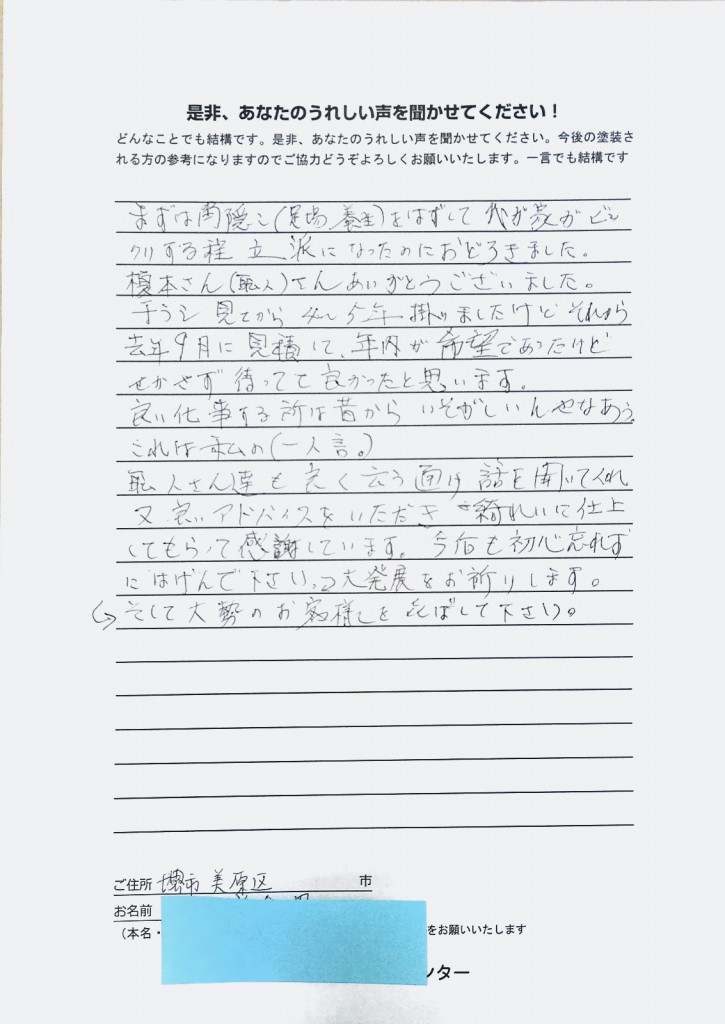 是非、あなたのうれしい声を聞かせてください！
どんなことでも結構です。是非、あなたのうれしい声を聞かせてください。今後の塗装さ
れる方の参考になりますのでご協力どうぞよろしくお願いいたします。一言でも結構です
まずは (足場 養生)をはずして が
クリする程 立派になったのにおどろきました。
榎本さん(職人)さんありがとうございました。
チラシ見てから 掛りましたけど それから
去年9月に見積して、年内が希望であったけど
せかさず待ってて良かったと思います。
良い仕事する所は昔から いそがしいんやなあぅ
これは私の(一人言。)
職人さん達も良く云う 話を聞いてくれ
又良いアドバイスをいただき 綺れいに仕上
してもらって感謝しています。今后も初心忘れず
にはげんで下さい 大発展をお祈りします。
そして大勢のお客様を 下さい。
ご住所 堺市 美原区 市
お名前
(本名・ をお願いいたします
ンター